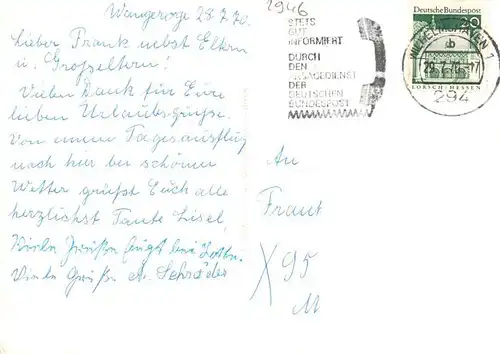 2946
Wangerooge 28.7.70.
Lieber Frank nebst Eltern
u. Großeltern!
Vielen Dank für Eure
lieben Urlaubsgrüße.
Von einem Tagesausflug
nach hier bei schönem
Wetter grüßt Euch alle
herzlichst Tante Liesel,
Viele Grüße fügt bei
Viele Grüße A. Schröder
STETS
GUT
INFORMIERT
DURCH
DEN
ANSAGEDIENST
DER
DEUTSCHEN
BUNDESPOST
Deutsche Bundespost
20
LORSCH/HESSEN
WILHELMSHAVEN 1
29.7.70-17
294
An
X 95
M